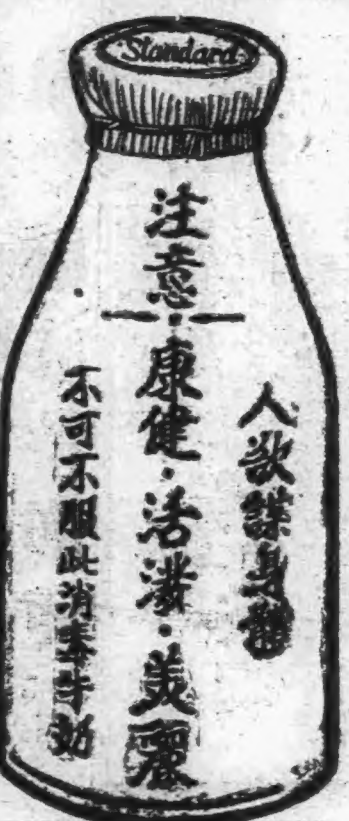 Standard
注意
人欲謀身體
康健·活潑·美麗
不可不服此消毒牛奶